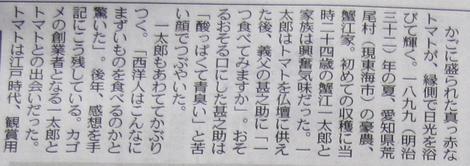 かごに盛られた真っ赤な
トマトが、縁側で日光を浴
びて輝く。一八九九（明治
三十二）年の夏、愛知県荒
尾村（現東海市）の豪農、
蟹江家。初めての収穫に当
時二十四歳の蟹江一太郎と
家族は興奮気味だった。一
太郎はトマトを仏壇に供え
た後、義父の甚之助に「一
つ食べてみますか」。おそ
るおそる口にした甚之助は
「酸っぱくて青臭い」と苦
い顔でつぶやいた。
一太郎もあわててかぶり
つく。「西洋人はこんなに
まずいものを食べるのかと
驚いた」。後年、感想を手
記にこう残している。カゴ
メの創業者となる一太郎と
トマトとの出会いだった。
トマトは江戸時代、観賞用